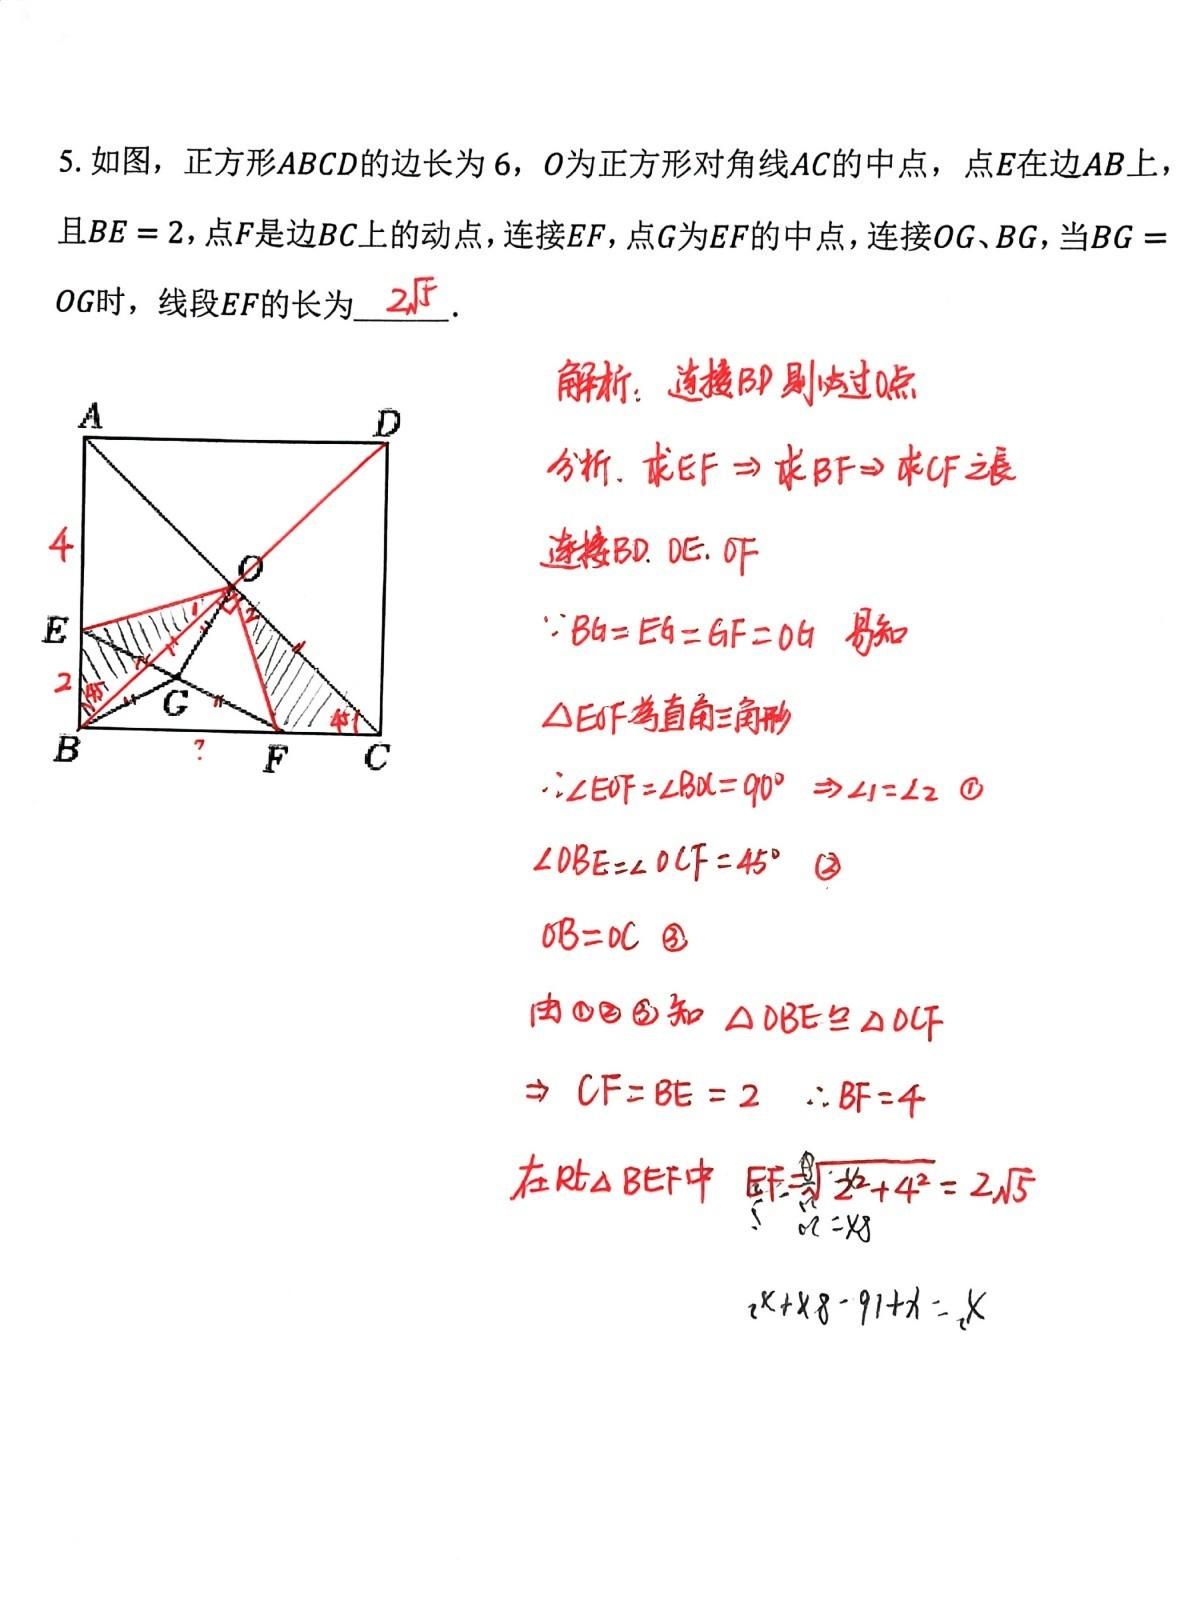 5. 如图，正方形ABCD的边长为 6，O为正方形对角线AC的中点，点E在边AB上，
且BE = 2，点F是边BC上的动点，连接EF，点G为EF的中点，连接OG、BG，当BG =
OG时，线段EF的长为 2√5 .
解析：连接BD 则必过O点
分析. 求EF ⇒ 求BF ⇒ 求CF之長
连接BD. OE. OF
∵ BG = EG = GF = OG 易知
△EOF為直角三角形
∴∠EOF=∠BOC=90° ⇒∠1=∠2 ①
∠OBE=∠OCF=45° ②
OB=OC ③
由①②③知 △OBE≌△OCF
⇒ CF=BE=2 ∴BF=4
在Rt△BEF中 EF=√2²+4² = 2√5
A
D
4
O
1
2
E
2
45
G
45
B
?
F
C